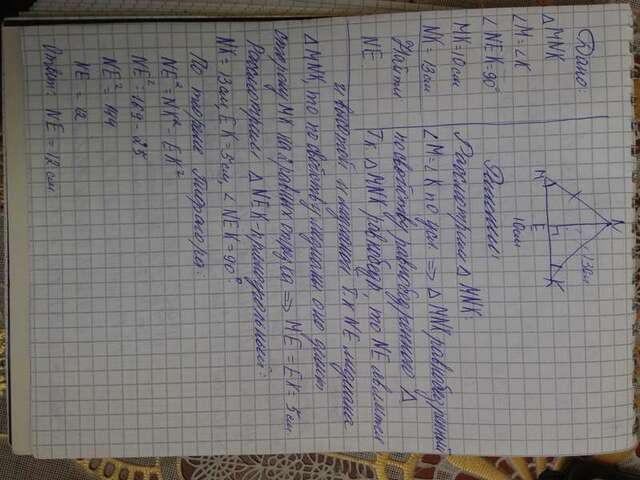 Дано:
△MNK
∠M=∠K
∠NEK=90°
MK=10см
NK=13см
Найти
NE
N
M
K
E
10см
13см
Решение:
Рассмотрим △ MNK:
∠M=∠K по усл ⇒ △MNK равнобедренный
по свойству равнобедренного △
Тк △MNK равнобедр, то NE является
и высотой и медианой. Тк NE медиана
△MNK, то по свойству медианы она делит
сторону MK на 2 равных отрезка ⇒ ME=EK=5см
Рассмотрим △NEK-прямоугольный:
NK=13см, EK=5см, ∠NEK=90°
По теореме Пифагора:
NE²=NK²-EK²
NE²=169-25
NE²=144
NE=12
Ответ: NE=12см